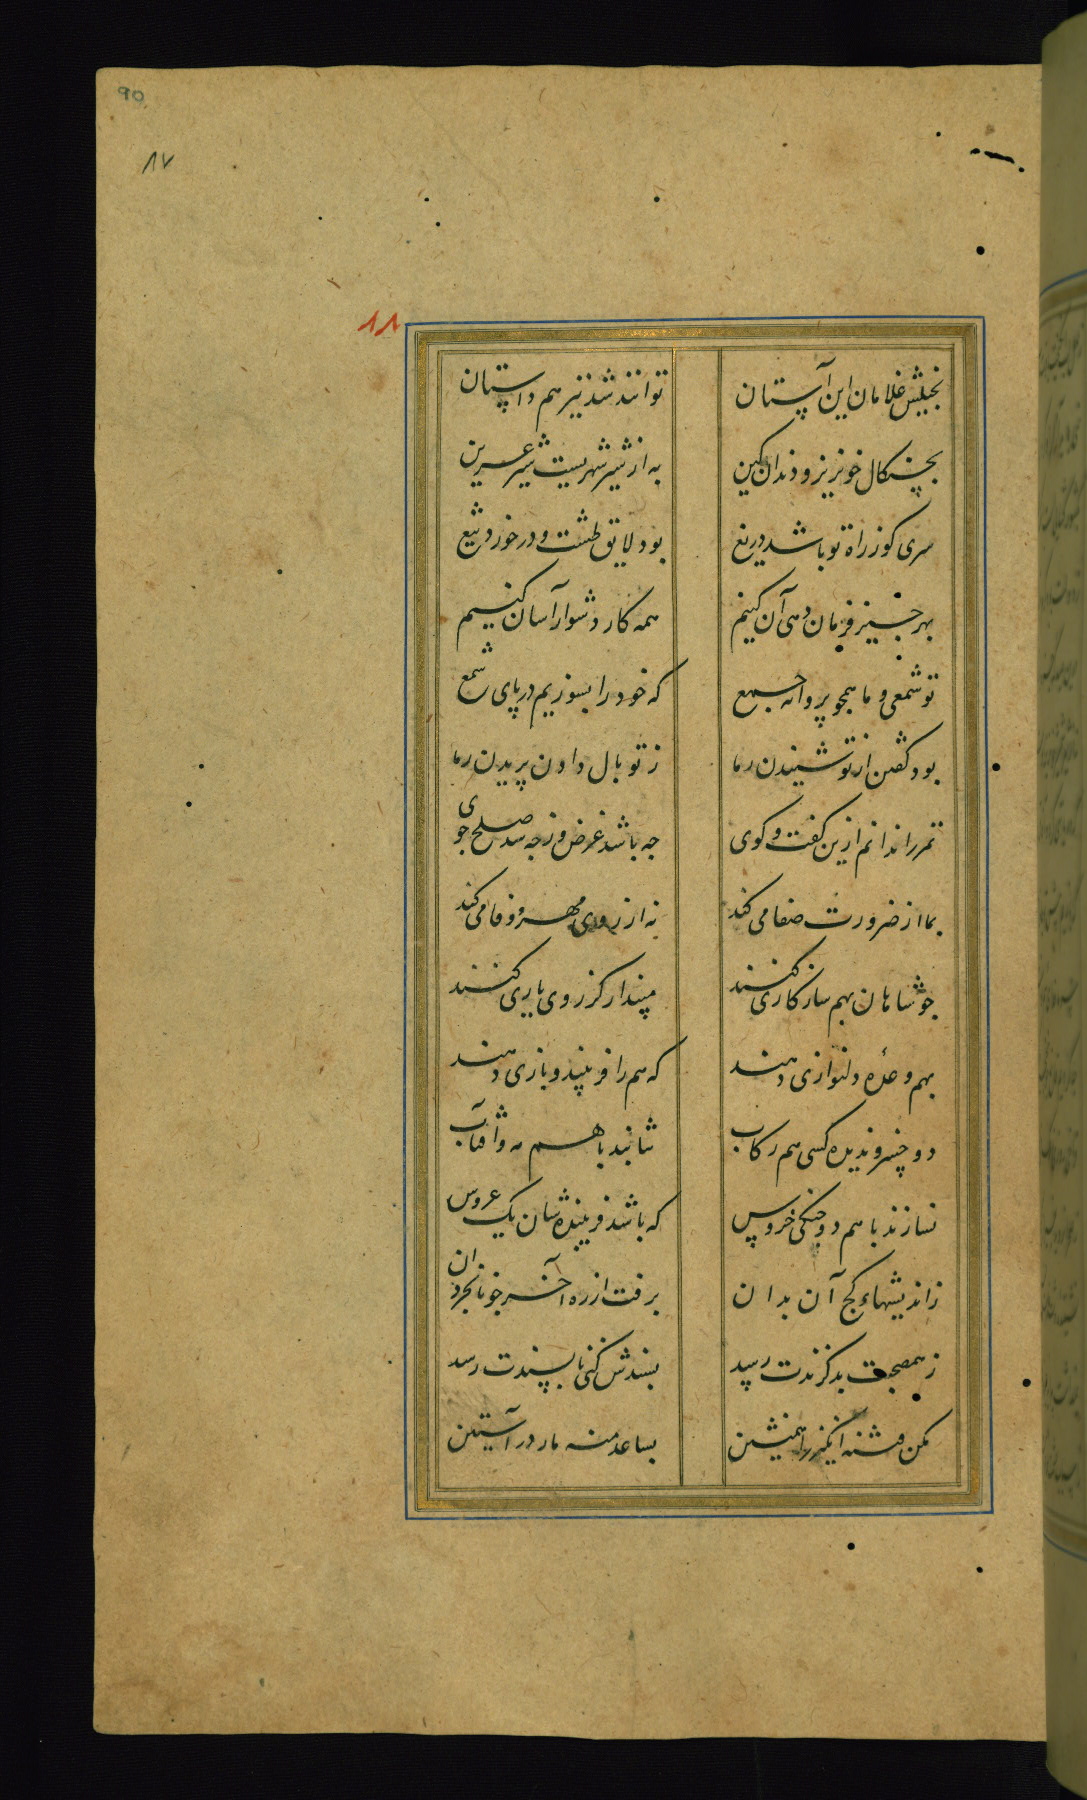 90
۸۷
۸۸
بخیلش غلامان این آستان توانند شد نیز هم داستان
بچنکال خونریز و دندان کین به از شیر شهریست شیر عرین
سری کوز راه تو باشد دریغ بود لایق طشت و در خورد تیغ
بهر چیز فرمان دهی آن کنیم همه کار دشوار آسان کنیم
تو شمعی و ما همچو پروانه جمع که خود را بسوزیم در پای شمع
بود گفتن از تو شنیدن ز ما ز تو بال دادن پریدن ز ما
تمر را ندانم ازین کفت و کوی چه باشد غرض وز چه شد صلح جوی
بما از ضرورت صفا می کند نه از روی مهر و وفا می کند
جو شاهان بهم سازکاری کنند مپندار کز روی یاری کنند
بهم وعدهٔ دلنوازی دهند که هم را فریبند و بازی دهند
دو خسرو ندیده کسی هم رکاب نتابند باهم مه و آفتاب
نسازند باهم دو جنکی خروس که باشد فریبنده شان یک عروس
ز اندیشهاء کج آن بدان برفت از ره آخر جو نابخردان
ز هم صحبت بد کزندت رسد بسندش کنی ناپسندت رسد
مکن فتنه انکیز را همنشین بساعد منه مار در آستین